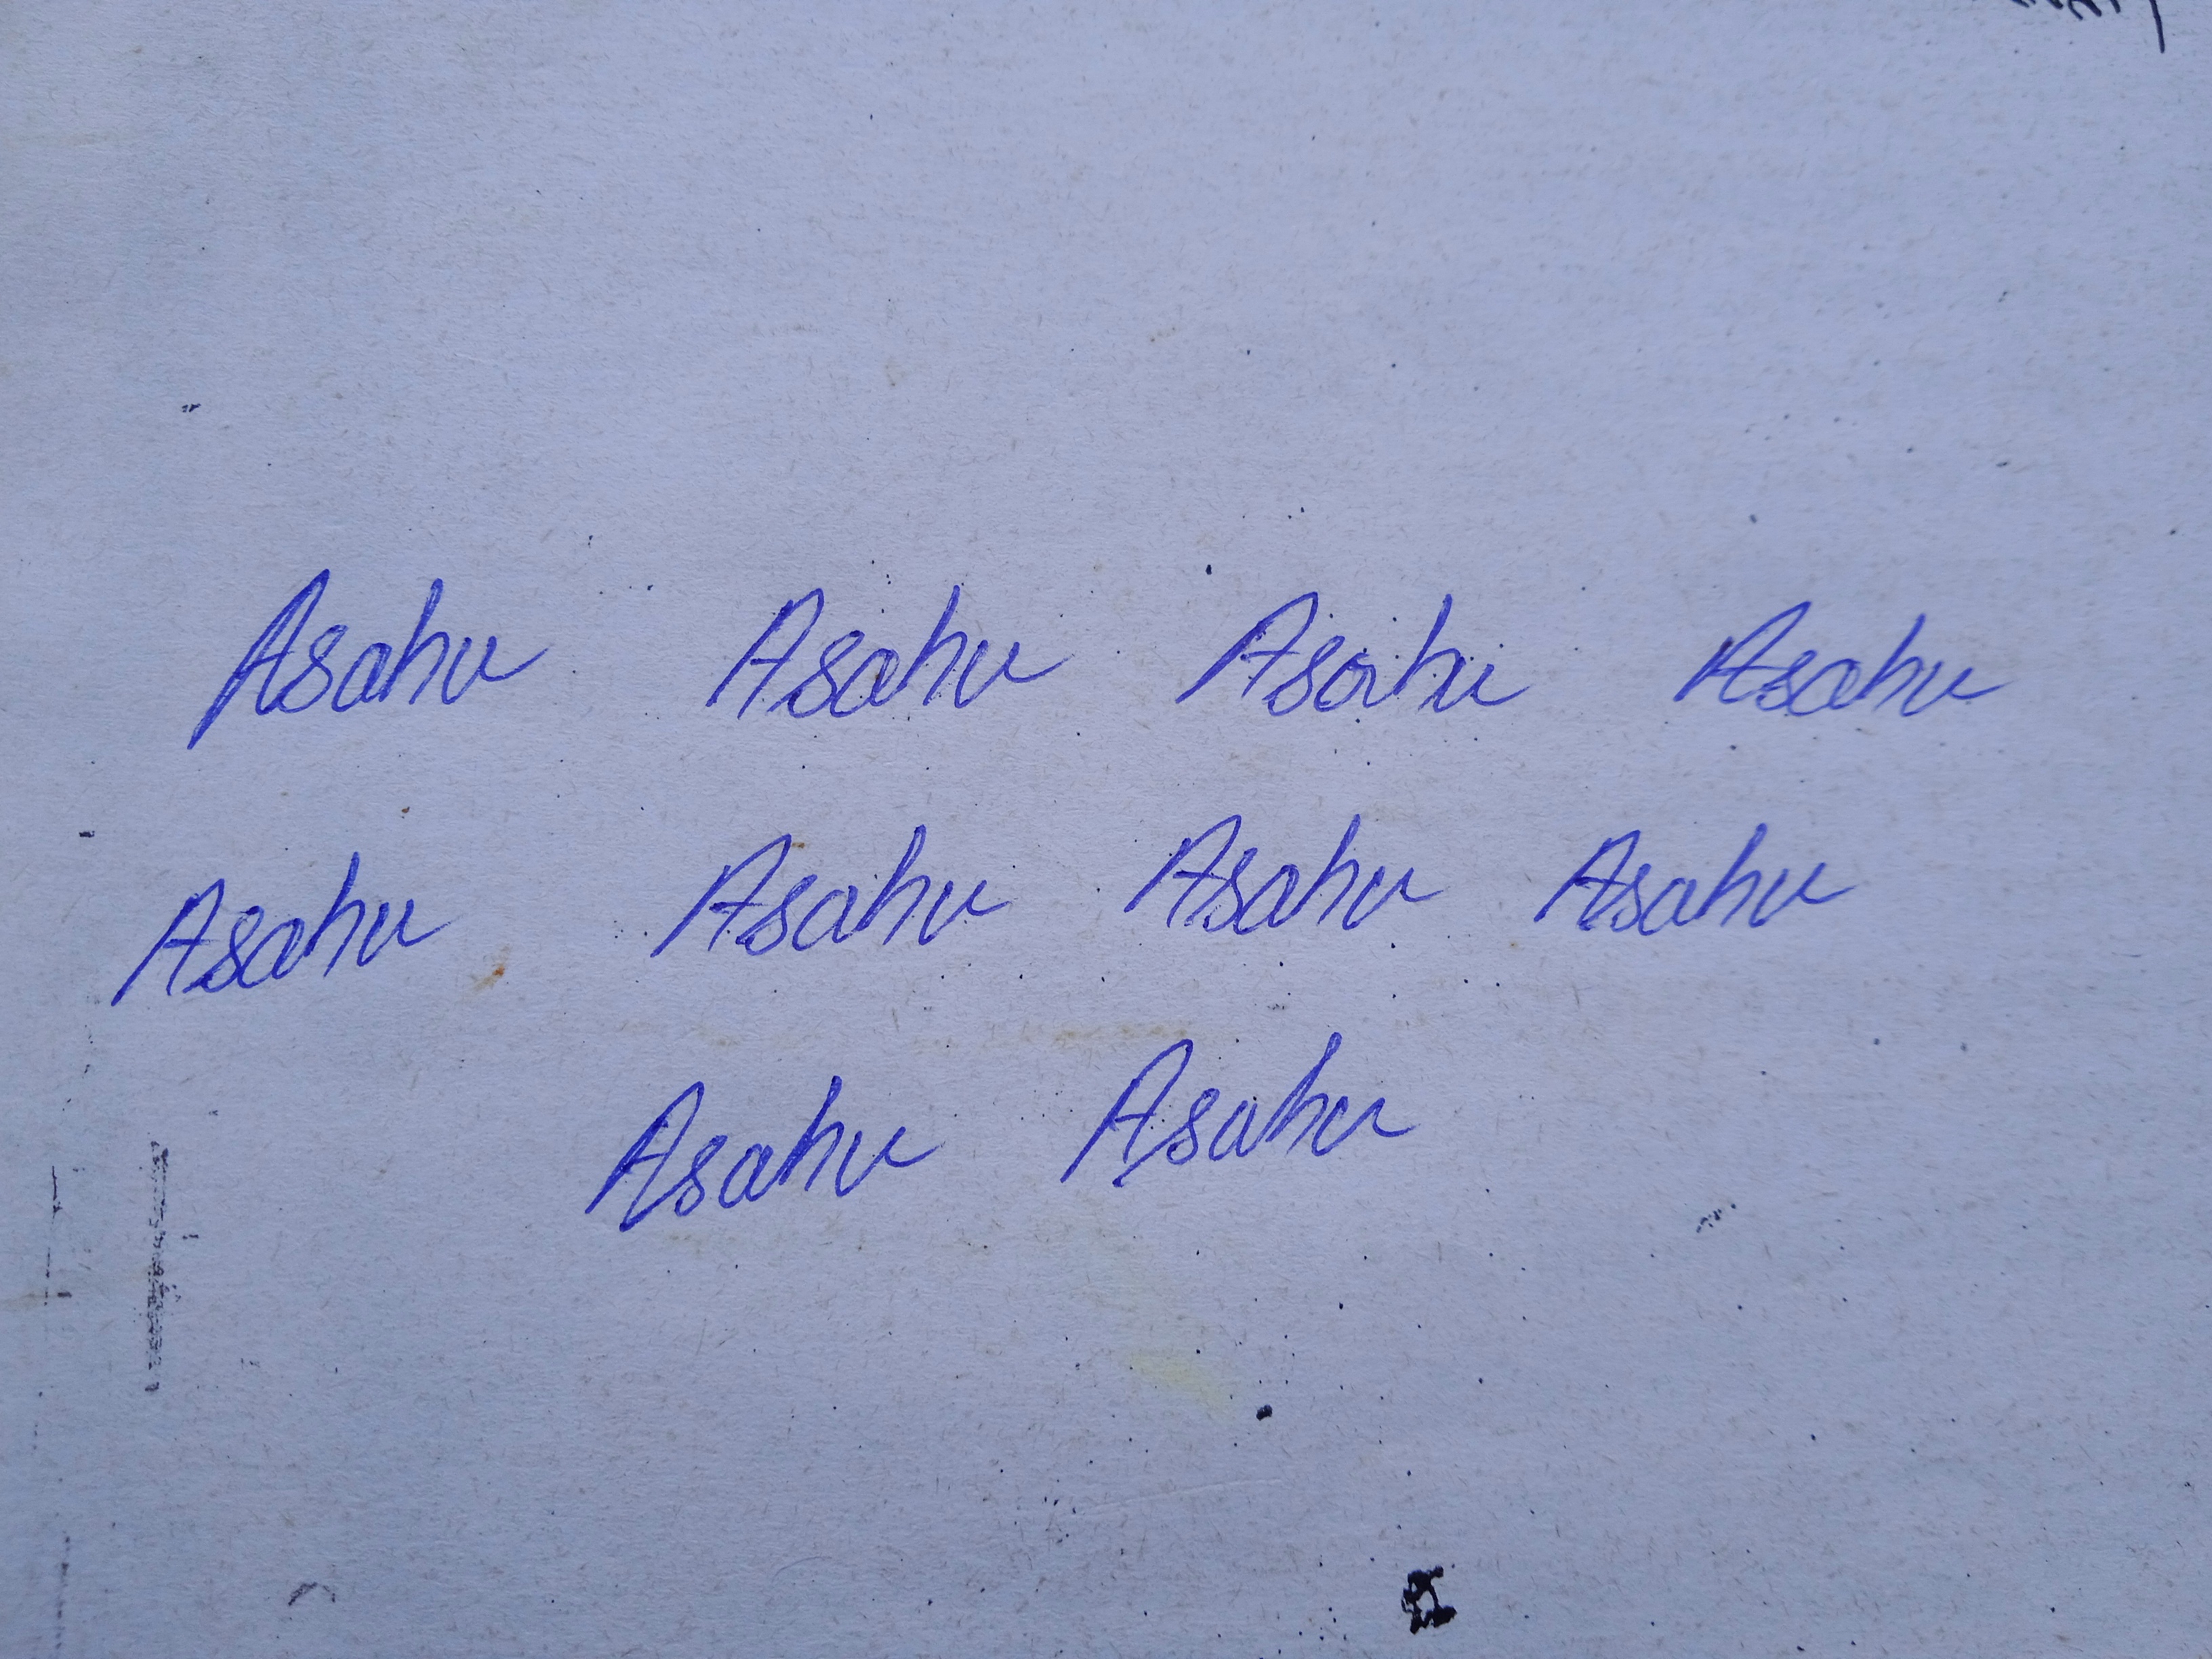 Asahu Asahu Asahu Asahu
Asahu Asahu Asahu Asahu
Asahu Asahu